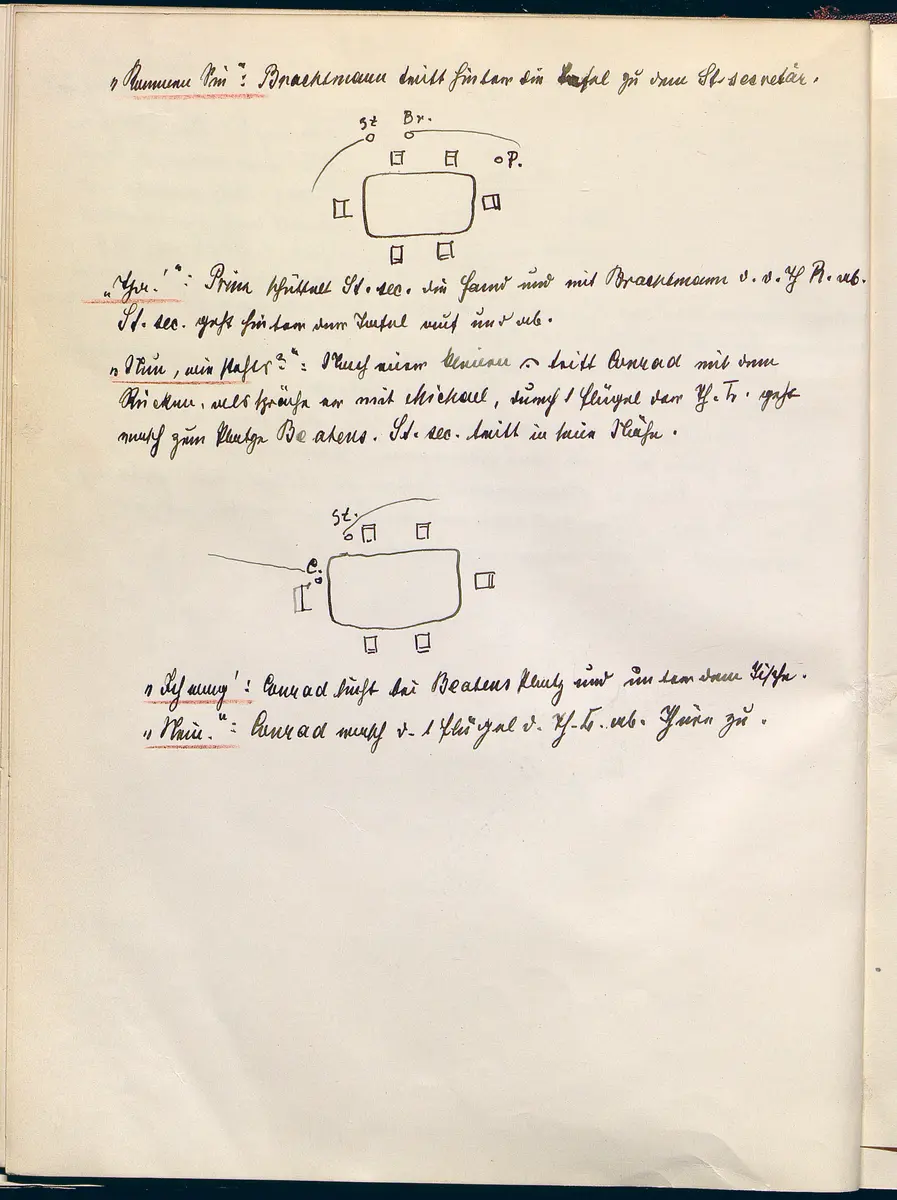 „Kommen Sie": Brachtmann tritt hinter die Tafel zu dem St. secretär.
St Br.
P.
": Prinz schüttelt St. sec. die Hand und mit Brachtmann d. d. Th R. ab.
St. sec. geht hinter der Tafel auf und ab.
„Nun, wie steht's?": Nach einer kleinen tritt Conrad mit dem
Rücken, als spräche er mit Michael, durch 1 Flügel der Th. geht
rasch zum Platze Beatens. St. sec. tritt in seine Nähe.
St.
C.
": Conrad sucht bei Beatens Platz und unter dem Tische.
„Nein.": Conrad rasch d. 1 Flügel d. Th. ab. Thüre zu.